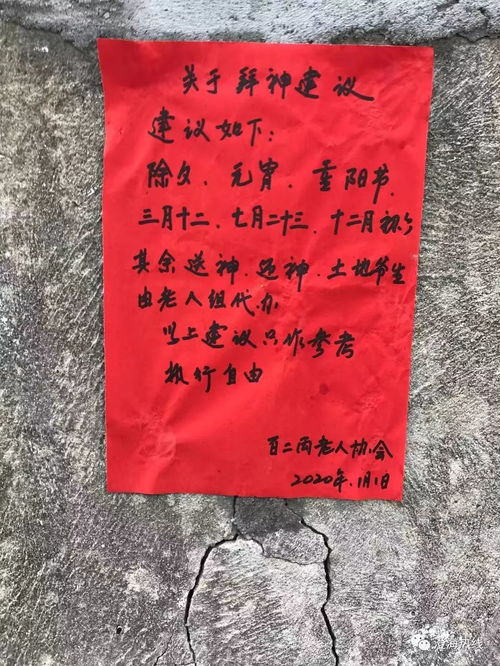 关于拜神建议
建议如下：
除夕、元宵、重阳节、
三月十二、七月二十三、十二月初六
其余送神、迎神、土地爷生
由老人组代办
以上建议只作参考
执行自由
百二两老人协会
2020年.1月1日